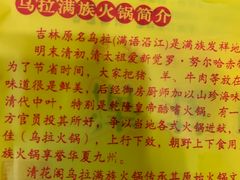 乌拉满族火锅简介
吉林原名乌拉(满语沿江)是满族发祥地
明末清初,清太祖爱新觉罗·努尔哈赤
为了节省时间,大家把猪、羊、牛等肉放在
味道很是鲜美,后经御房厨师加以山珍海味
清代中叶,特别是乾隆皇帝酷嗜火锅。有一
方官员投其所好,争以当地各式火锅进献,
佳(乌拉火锅),上行下效,朝野上下食用
族火锅享誉华夏九州。
清花阁乌拉满族火锅继承传统,